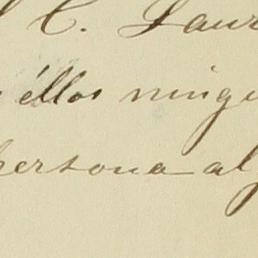 C. Laur
éllos ningu
persona al